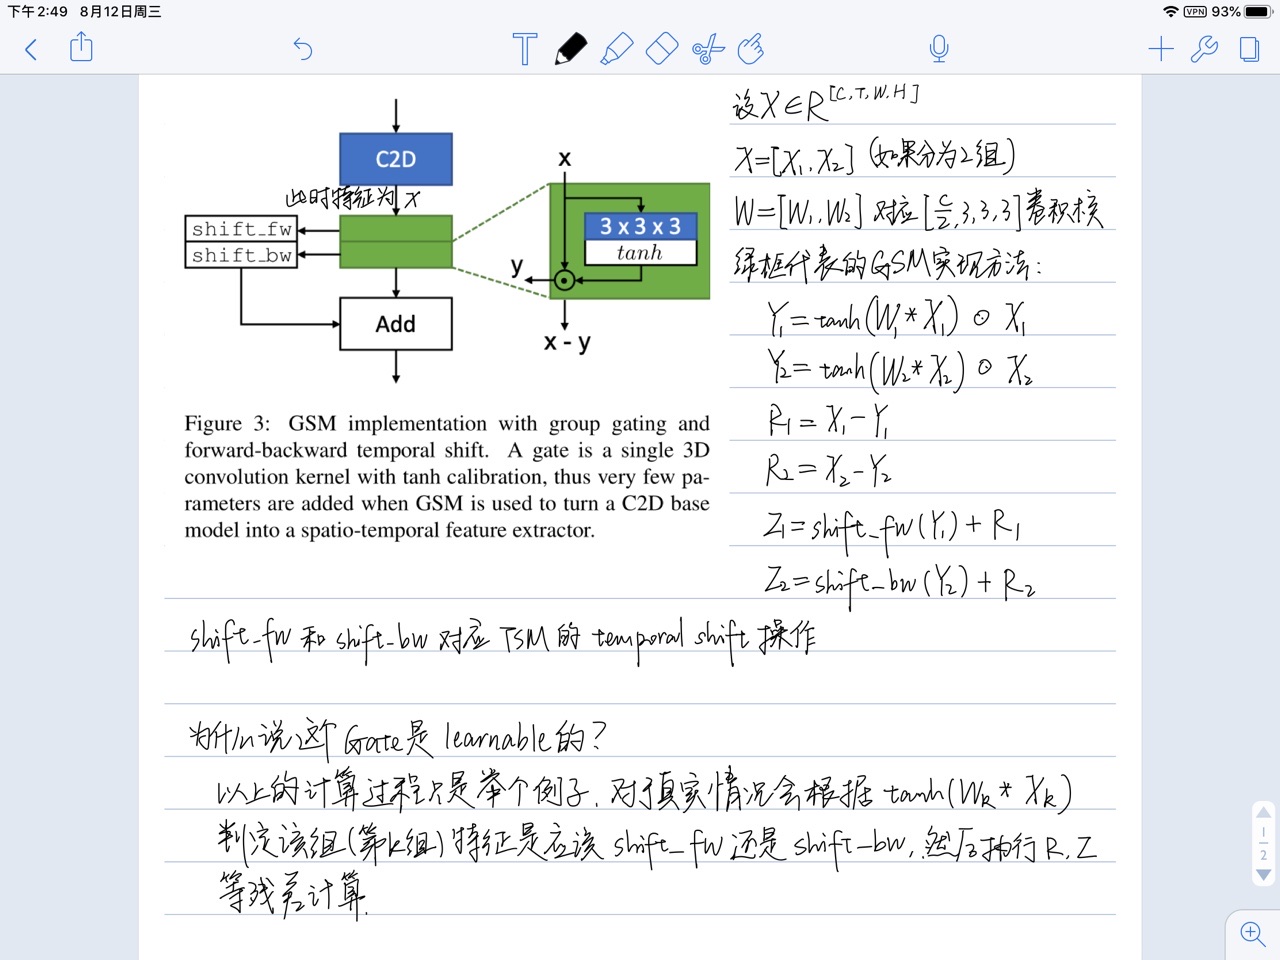 下午2:49 8月12日周三
VPN 93%
C2D
此时特征为 X
shift_fw
shift_bw
Add
x
3 x 3 x 3
tanh
y
x - y
Figure 3: GSM implementation with group gating and
forward-backward temporal shift. A gate is a single 3D
convolution kernel with tanh calibration, thus very few pa-
rameters are added when GSM is used to turn a C2D base
model into a spatio-temporal feature extractor.
设X∈R^[C,T,W,H]
X=[X₁,X₂] (如果分为2组)
W=[W₁,W₂] 对应[C/2,3,3,3]卷积核
绿框代表的GSM实现方法:
Y₁=tanh(W₁*X₁)⊙X₁
Y₂=tanh(W₂*X₂)⊙X₂
R₁=X₁-Y₁
R₂=X₂-Y₂
Z₁=shift_fw(Y₁)+R₁
Z₂=shift_bw(Y₂)+R₂
shift_fw 和 shift_bw 对应 TSM 的 temporal shift 操作
为什么说这个 Gate是 learnable的?
以上的计算过程只是举个例子,对于真实情况会根据 tanh(Wk * Xk)
判定该组(第k组)特征是应该 shift_fw 还是 shift_bw,然后执行 R,Z
等残差计算.
1
2